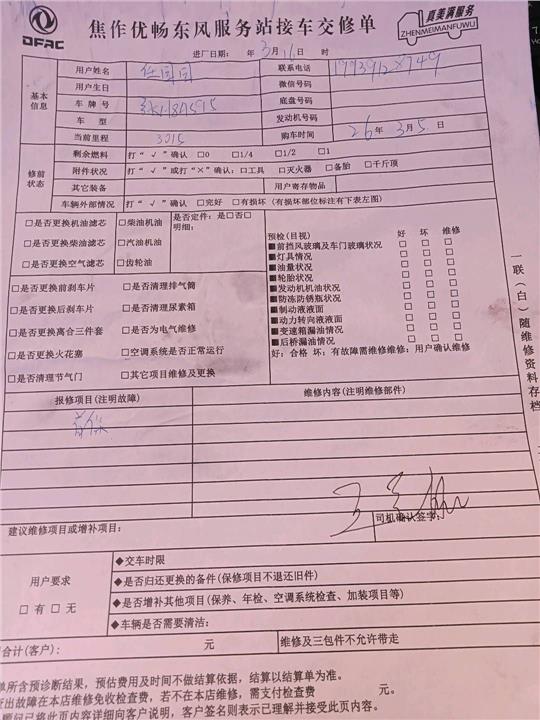 DFAC
焦作优畅东风服务站接车交修单
真美满服务
ZHENMEIMANFUWU
进厂日期： 年 3月 16日 时
基本信息
用户姓名 任国国
联系电话
用户生日
微信号码
车 牌 号
底盘号码
车 型
发动机号码
当前里程 3015
购车时间 26年 3月 5日
修前状态
剩余燃料 打“√”确认 □0 □1/4 □1/2 □1
附件状况 打“√”或打“×”确认：□工具 □灭火器 □备胎 □千斤顶
其它装备
用户寄存物品
车辆外部情况 打“√”确认 □完好 □有损坏（有损坏部位标注有下表左图）
□是否更换机油滤芯 □柴油机油
□是否更换柴油滤芯 □汽油机油
□是否更换空气滤芯 □齿轮油
是否定件：是□否□
明细：
□是否更换前刹车片 □是否清理排气筒
□是否更换后刹车片 □是否清理尿素箱
□是否更换离合三件套 □是否为电气维修
□是否更换火花塞 □空调系统是否正常运行
□是否清理节气门 □其它项目维修及更换
预检(目视) 好 坏 维修
■前挡风玻璃及车门玻璃状况 □ □ □
■灯具情况 □ □ □
■油量状况 □ □ □
■轮胎状况 □ □ □
■发动机机油状况 □ □ □
■防冻防锈瓶状况 □ □ □
■制动液液面 □ □ □
■动力转向液液面 □ □ □
■变速箱漏油情况 □ □ □
■后桥漏油情况 □ □ □
好：合格 坏：有故障需维修维修：用户确认维修
一联（白）随维修资料存档
报修项目(注明故障)
维修内容(注明维修部件)
首保
建议维修项目或增补项目：
司机确认签字：
用户要求
□ 有 □ 无
◆交车时限
◆是否归还更换的备件(保修项目不退还旧件)
◆是否增补其他项目(保养、年检、空调系统检查、加装项目等)
◆车辆是否需要清洁：
合计(客户)： 元
维修及三包件不允许带走
单所含预诊断结果，预估费用及时间不做结算依据，结算以结算单为准。
查出故障在本店维修免收检查费，若不在本店维修，需支付检查费 元。
顾问已将此页内容详细向客户说明，客户签名则表示已理解并接受此页内容。